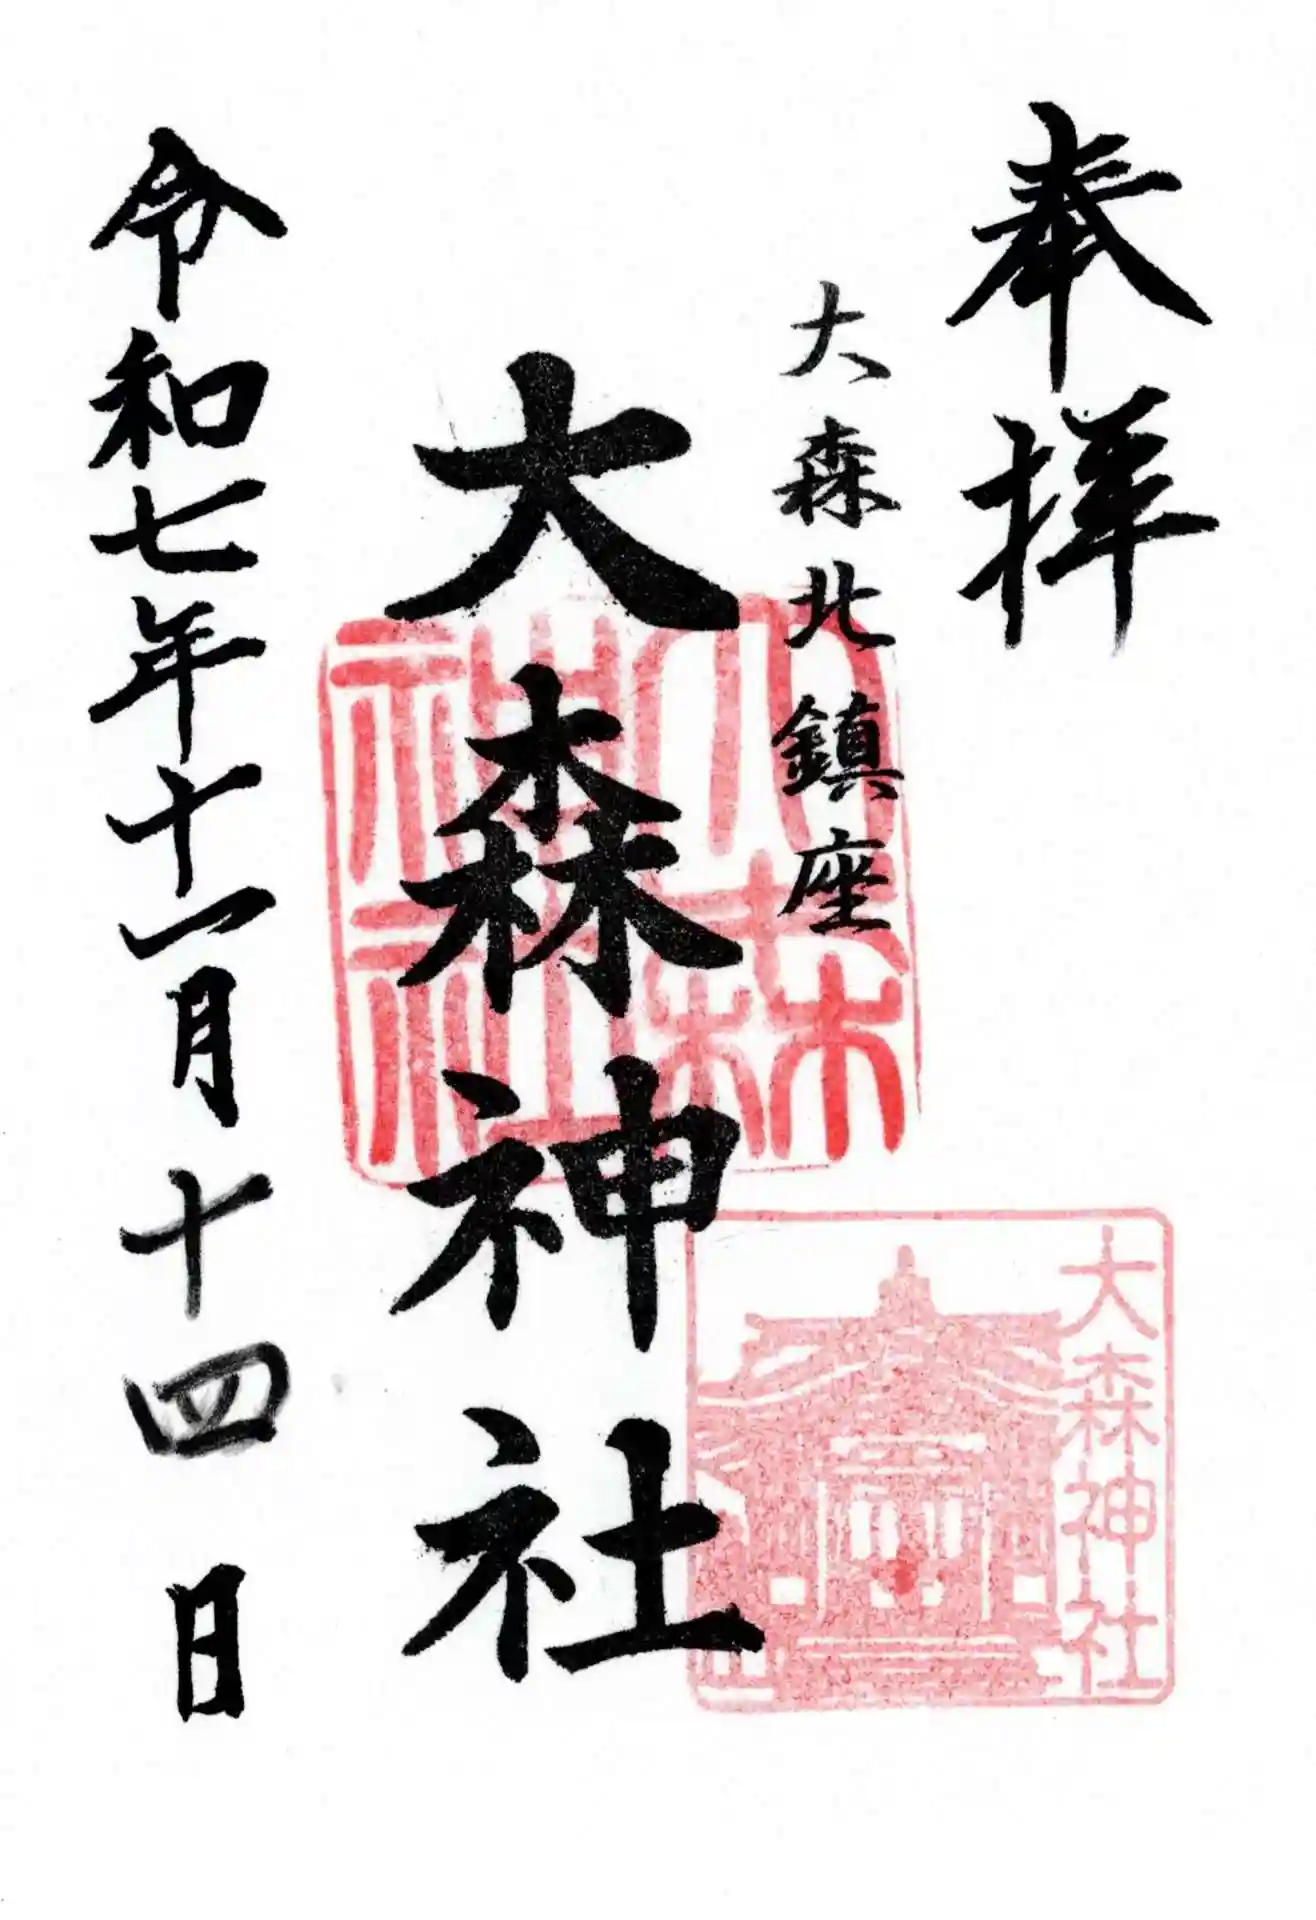 奉拝
大森北鎮座
大森神社
令和七年十一月十四日
大森神社
大森神社